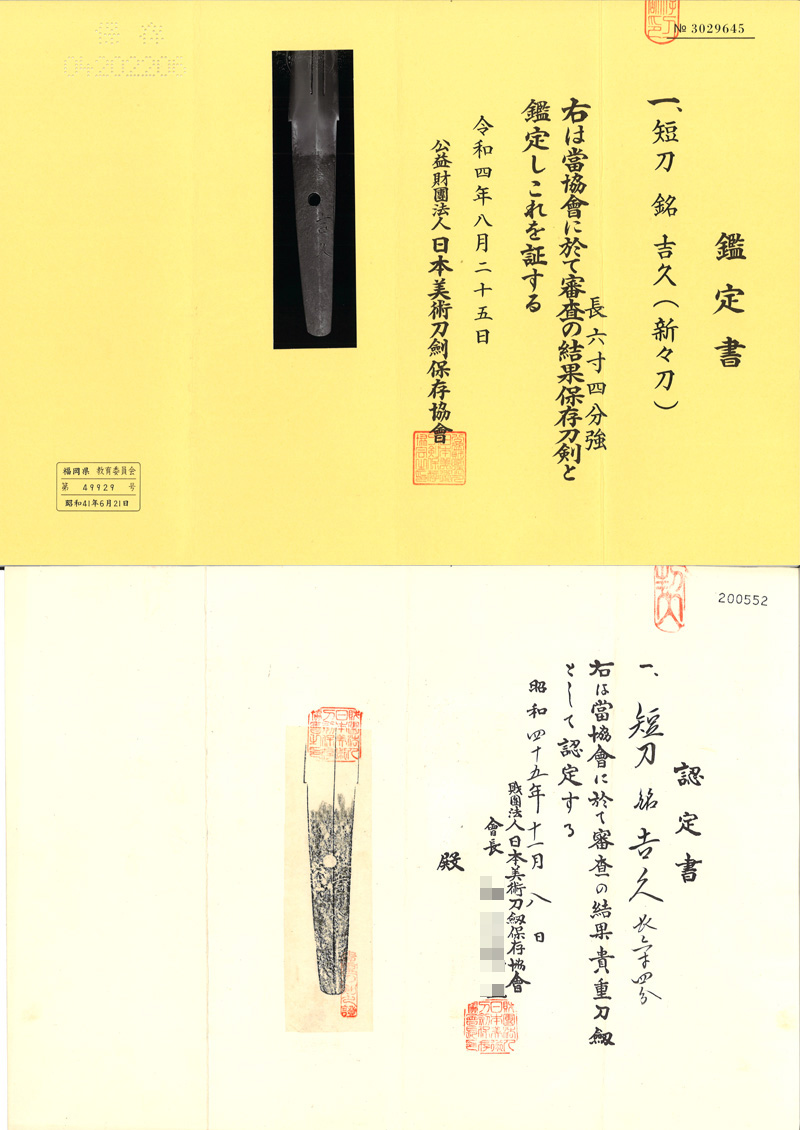 № 3029645
鑑定書
一、短刀 銘 吉久(新々刀)
長六寸四分強
右は當協會に於て審査の結果保存刀剣と
鑑定しこれを証する
令和四年八月二十五日
公益財團法人日本美術刀劍保存協會
保存
04202206
吉久
福岡県 教育委員会
第 49929 号
昭和41年6月21日
200552
認定書
一、短刀 銘 吉久 長六寸四分
右は當協會に於て審査の結果貴重刀劔
として認定する
昭和四十五年十一月八日
財團法人日本美術刀劔保存協會
會長
殿